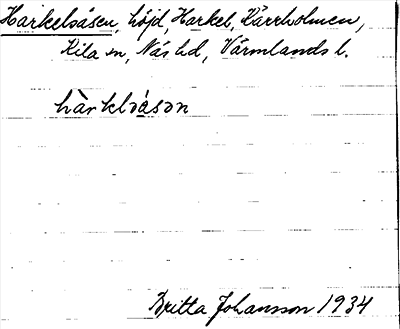 Harkelsåsen, höjd, Harkel, Kärrholmen,
Kila sn, Näs hd, Värmlands l.
hàrkləåsən
Britta Johansson 1934